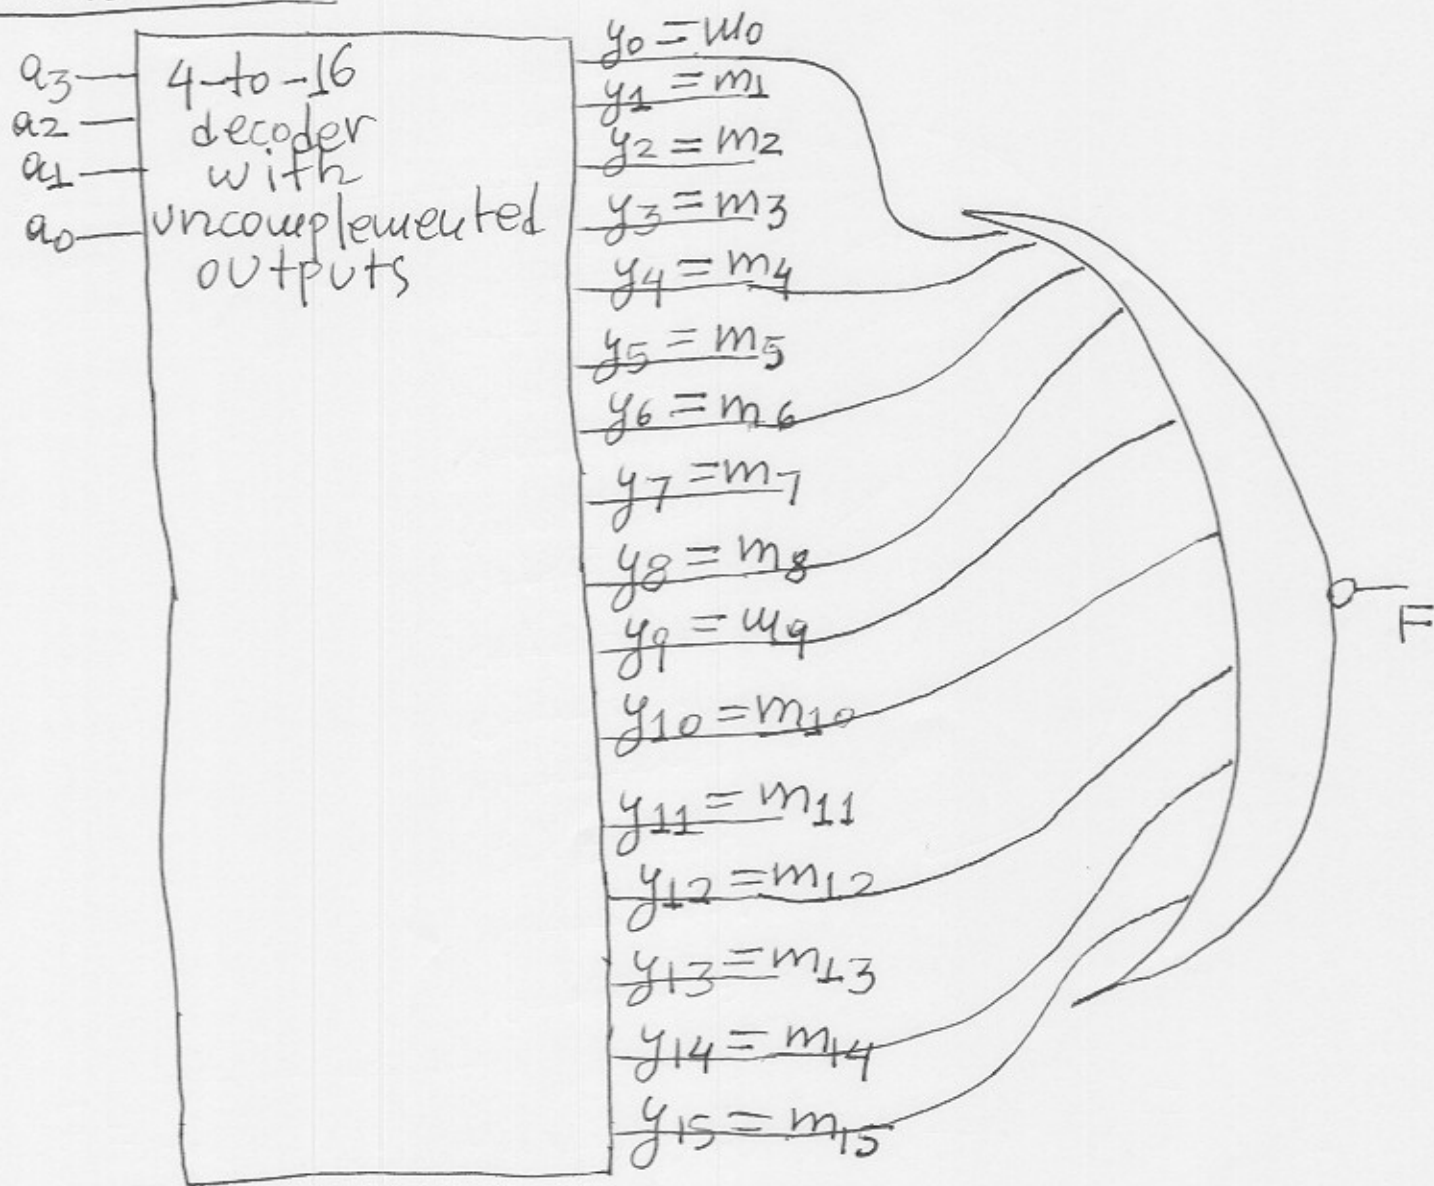 a3
a2
a1
a0
4-to-16
decoder
with
uncomplemented
outputs
y0 = m0
y1 = m1
y2 = m2
y3 = m3
y4 = m4
y5 = m5
y6 = m6
y7 = m7
y8 = m8
y9 = m9
y10 = m10
y11 = m11
y12 = m12
y13 = m13
y14 = m14
y15 = m15
F